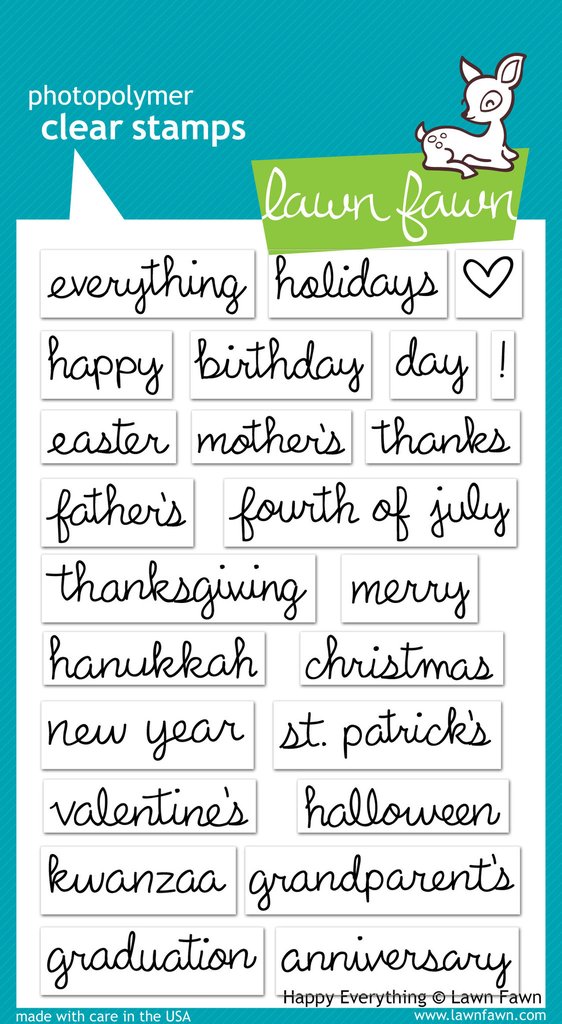 photopolymer
clear stamps
lawn fawn
everything holidays
happy birthday day !
easter mother's thanks
father's fourth of july
thanksgiving merry
hanukkah christmas
new year st. patrick's
valentine's halloween
kwanzaa grandparent's
graduation anniversary
Happy Everything © Lawn Fawn
made with care in the USA www.lawnfawn.com